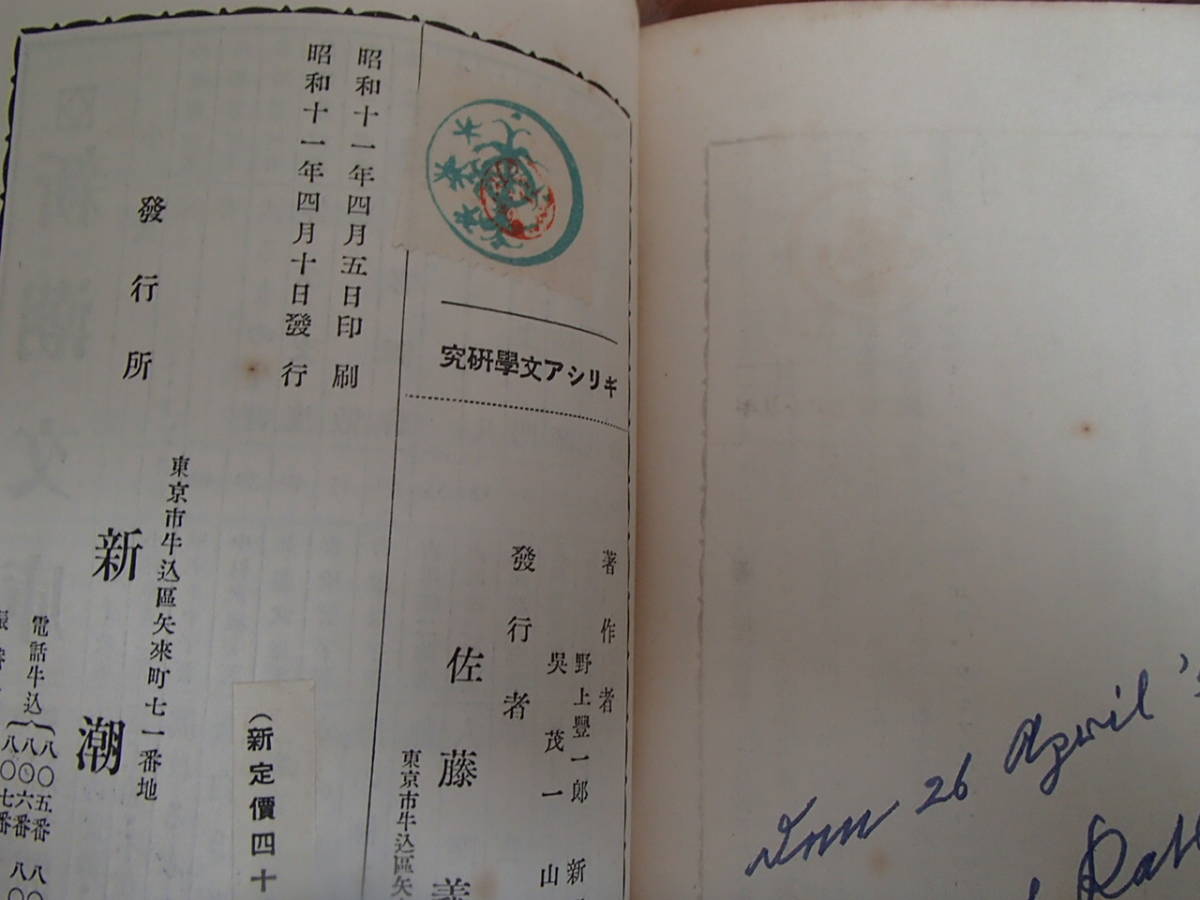 ギリシア文學硏究
昭和十一年四月五日印刷
昭和十一年四月十日發行
著作者
野上豐一郎 新
吳茂一 山
發行者
佐藤義
東京市牛込區矢
(新定價四十
發行所
東京市牛込區矢來町七一番地
新潮
電話牛込
八〇五番
八〇六番
八〇七番
26 April